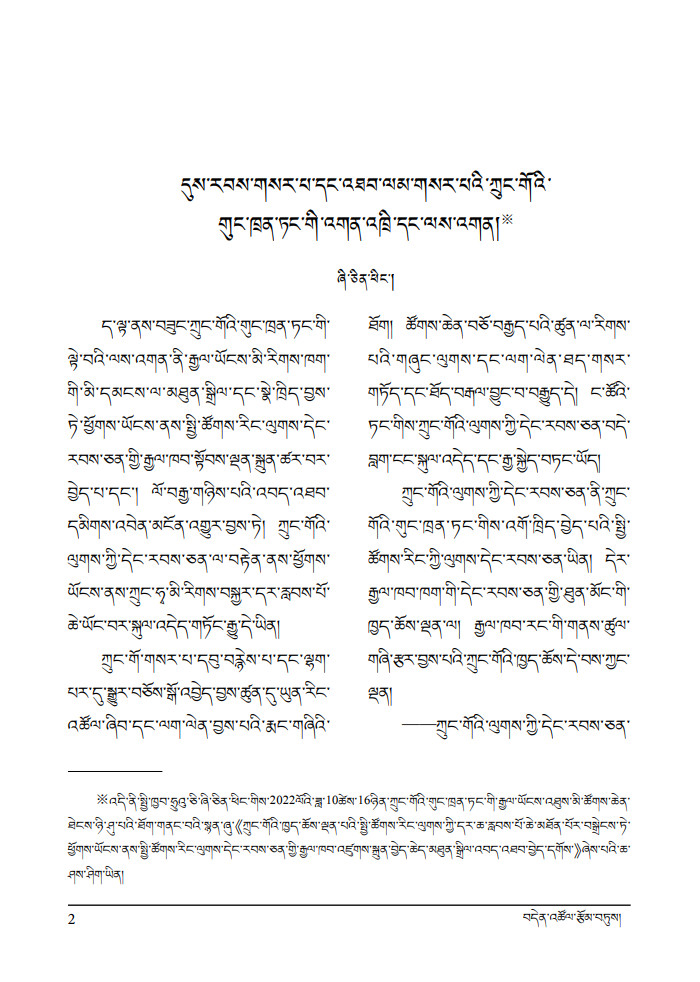 དུས་རབས་གསར་པ་དང་འཐབ་ལམ་གསར་པའི་ཀྲུང་གོའི་
གུང་ཁྲན་ཏང་གི་འགན་འཁྲི་དང་ལས་འགན།※
ཞི་ཅིན་ཕིང་།
ད་ལྟ་ནས་བཟུང་ཀྲུང་གོའི་གུང་ཁྲན་ཏང་གི་
ལྟེ་བའི་ལས་འགན་ནི་རྒྱལ་ཡོངས་མི་རིགས་ཁག་
གི་མི་དམངས་ལ་མཐུན་སྒྲིལ་དང་སྣེ་ཁྲིད་བྱས་
ཏེ་ཕྱོགས་ཡོངས་ནས་སྤྱི་ཚོགས་རིང་ལུགས་དེང་
རབས་ཅན་གྱི་རྒྱལ་ཁབ་སྟོབས་ལྡན་སྐྲུན་ཚར་བར་
བྱེད་པ་དང་། ལོ་བརྒྱ་གཉིས་པའི་འབད་འཐབ་
དམིགས་འབེན་མངོན་འགྱུར་བྱས་ཏེ། ཀྲུང་གོའི་
ལུགས་ཀྱི་དེང་རབས་ཅན་ལ་བརྟེན་ནས་ཕྱོགས་
ཡོངས་ནས་ཀྲུང་ཧྭ་མི་རིགས་བསྐྱར་དར་རླབས་པོ་
ཆེ་ཡོང་བར་སྐུལ་འདེད་གཏོང་རྒྱུ་དེ་ཡིན།
ཀྲུང་གོ་གསར་པ་དབུ་བརྙེས་པ་དང་ལྷག་
པར་དུ་སྒྱུར་བཅོས་སྒོ་འབྱེད་བྱས་ཚུན་དུ་ཡུན་རིང་
འཚོལ་ཞིབ་དང་ལག་ལེན་བྱས་པའི་རྨང་གཞིའི་
ཐོག ཚོགས་ཆེན་བཅོ་བརྒྱད་པའི་ཚུན་ལ་རིགས་
པའི་གཞུང་ལུགས་དང་ལག་ལེན་ཐད་གསར་
གཏོད་དང་ཐོད་བརྒལ་བྱུང་བ་བརྒྱུད་དེ། ང་ཚོའི་
ཏང་གིས་ཀྲུང་གོའི་ལུགས་ཀྱི་དེང་རབས་ཅན་བདེ་
བླག་ངང་སྐུལ་འདེད་དང་རྒྱ་སྐྱེད་བཏང་ཡོད།
ཀྲུང་གོའི་ལུགས་ཀྱི་དེང་རབས་ཅན་ནི་ཀྲུང་
གོའི་གུང་ཁྲན་ཏང་གིས་འགོ་ཁྲིད་བྱེད་པའི་སྤྱི་
ཚོགས་རིང་ཀྱི་ལུགས་དེང་རབས་ཅན་ཡིན། དེར་
རྒྱལ་ཁབ་ཁག་གི་དེང་རབས་ཅན་གྱི་ཐུན་མོང་གི་
ཁྱད་ཆོས་ལྡན་ལ། རྒྱལ་ཁབ་རང་གི་གནས་ཚུལ་
གཞི་རྩར་བྱས་པའི་ཀྲུང་གོའི་ཁྱད་ཆོས་དེ་བས་ཀྱང་
ལྡན།
——ཀྲུང་གོའི་ལུགས་ཀྱི་དེང་རབས་ཅན་
※འདི་ནི་སྤྱི་ཁྱབ་ཧྲུའུ་ཅི་ཞི་ཅིན་ཕིང་གིས་2022ལོའི་ཟླ་10ཚེས་16ཉིན་ཀྲུང་གོའི་གུང་ཁྲན་ཏང་གི་རྒྱལ་ཡོངས་འཐུས་མི་ཚོགས་ཆེན་
ཐེངས་ཉི་ཤུ་པའི་ཐོག་གནང་བའི་སྙན་ཞུ་《ཀྲུང་གོའི་ཁྱད་ཆོས་ལྡན་པའི་སྤྱི་ཚོགས་རིང་ལུགས་ཀྱི་དར་ཆ་རླབས་པོ་ཆེ་མཐོན་པོར་བསྒྲེངས་ཏེ་
ཕྱོགས་ཡོངས་ནས་སྤྱི་ཚོགས་རིང་ལུགས་དེང་རབས་ཅན་གྱི་རྒྱལ་ཁབ་འཛུགས་སྐྲུན་བྱེད་ཆེད་མཐུན་སྒྲིལ་འབད་འཐབ་བྱེད་དགོས་》ཞེས་པའི་ཆ་
ཤས་ཤིག་ཡིན།
2 བདེན་འཚོལ་རྩོམ་བཏུས།